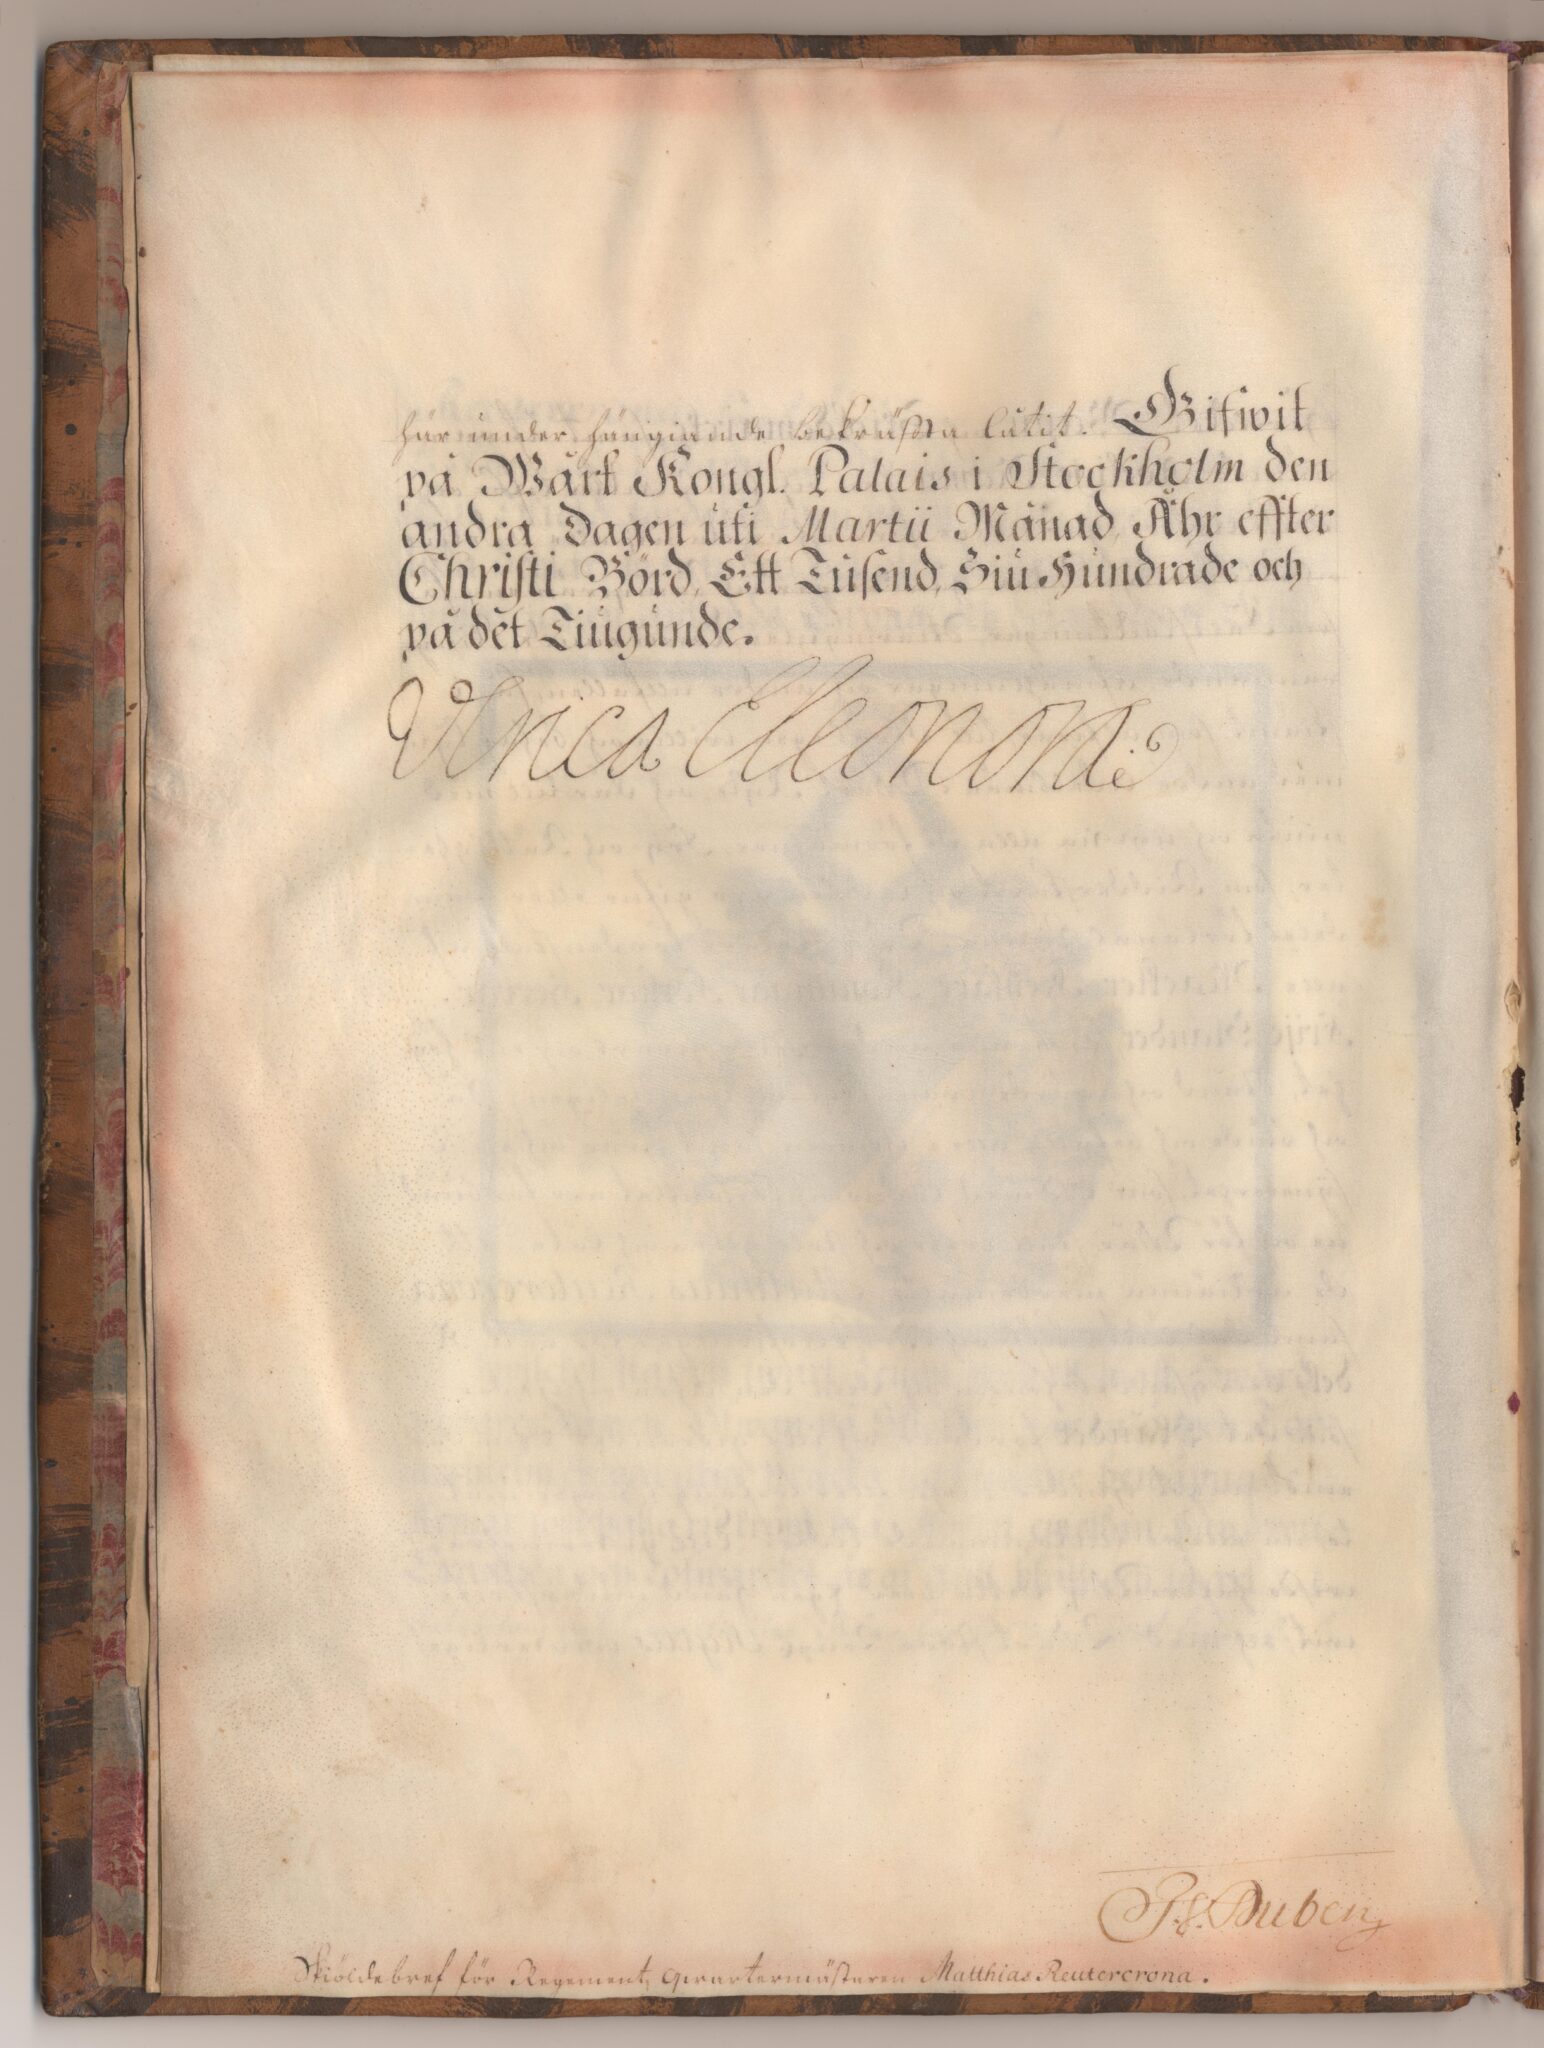 här under hängiande bekräffta låtit. Gifwit
på Wårt Kongl. Palais i Stockholm den
andra Dagen uti Martii Månad, Åhr effter
Christi Börd, Ett Tusend, Siu Hundrade och
på det Tiugunde.
Ulrica Eleonora
Düben
Skiöldebref för Regements Qwartermästaren Matthias Reutercrona.